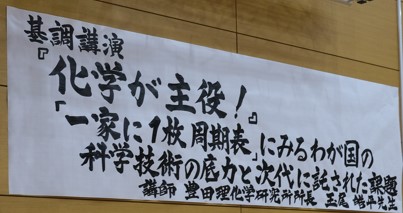 基調講演
『化学が主役！』
「一家に1枚周期表」にみるわが国の
科学技術の底力と次代に託された課題
講師 豊田理化学研究所所長 玉尾 皓平先生